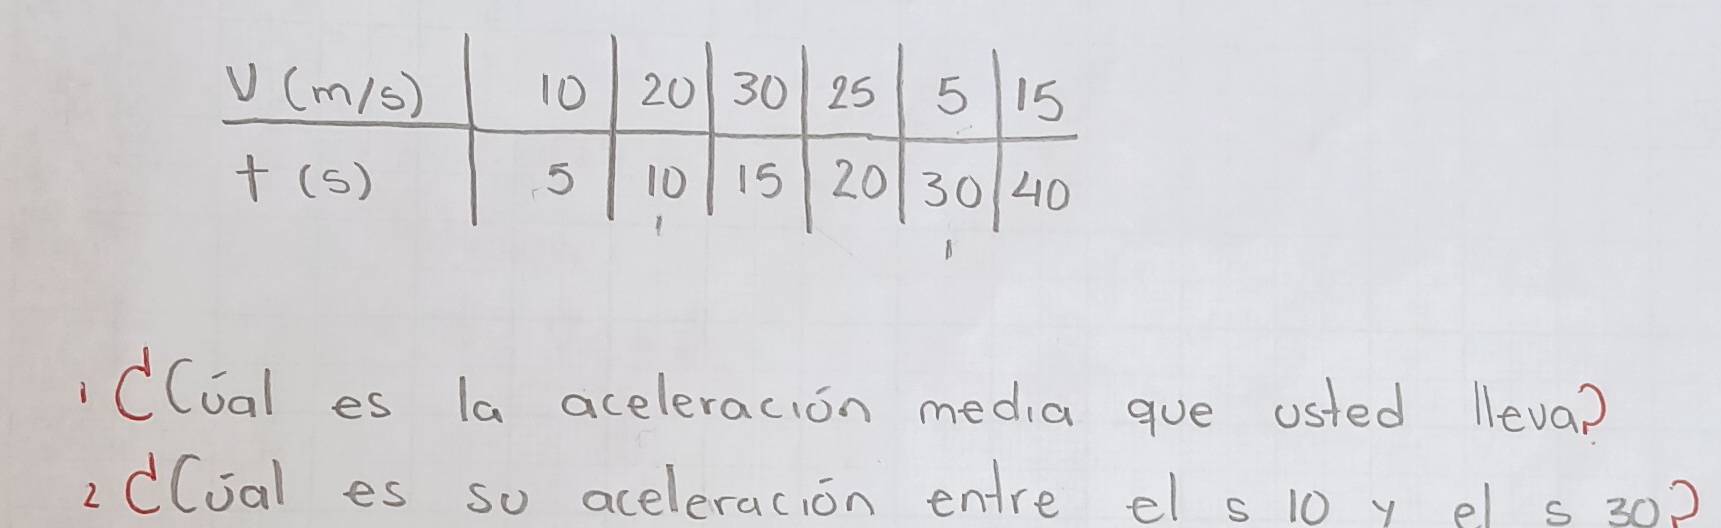 V (m/s) 10 20 30 25 5 15
t (s) 5 10 15 20 30 40
1 ¿Cúal es la aceleración media que usted lleva?
2 ¿Cúal es su aceleración entre el s 10 y el s 30?